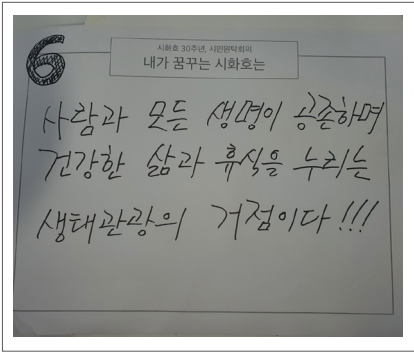 6
시화호 30주년, 시민원탁회의
내가 꿈꾸는 시화호는
사람과 모든 생명이 공존하며
건강한 삶과 휴식을 누리는
생태관광의 거점이다!!!